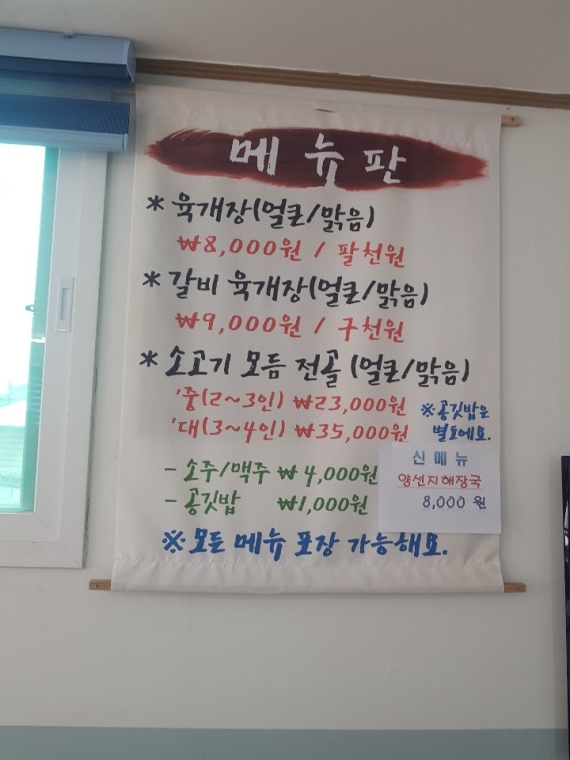 메뉴판
* 육개장(얼큰/맑음)
₩8,000원 / 팔천원
* 갈비 육개장(얼큰/맑음)
₩9,000원 / 구천원
* 소고기 모듬 전골 (얼큰/맑음)
'중(2~3인) ₩23,000원
'대(3~4인) ₩35,000원
※공깃밥은
별도에요.
- 소주/맥주 ₩4,000원
- 공깃밥 ₩1,000원
신메뉴
양선지해장국
8,000 원
※모든 메뉴 포장 가능해요.